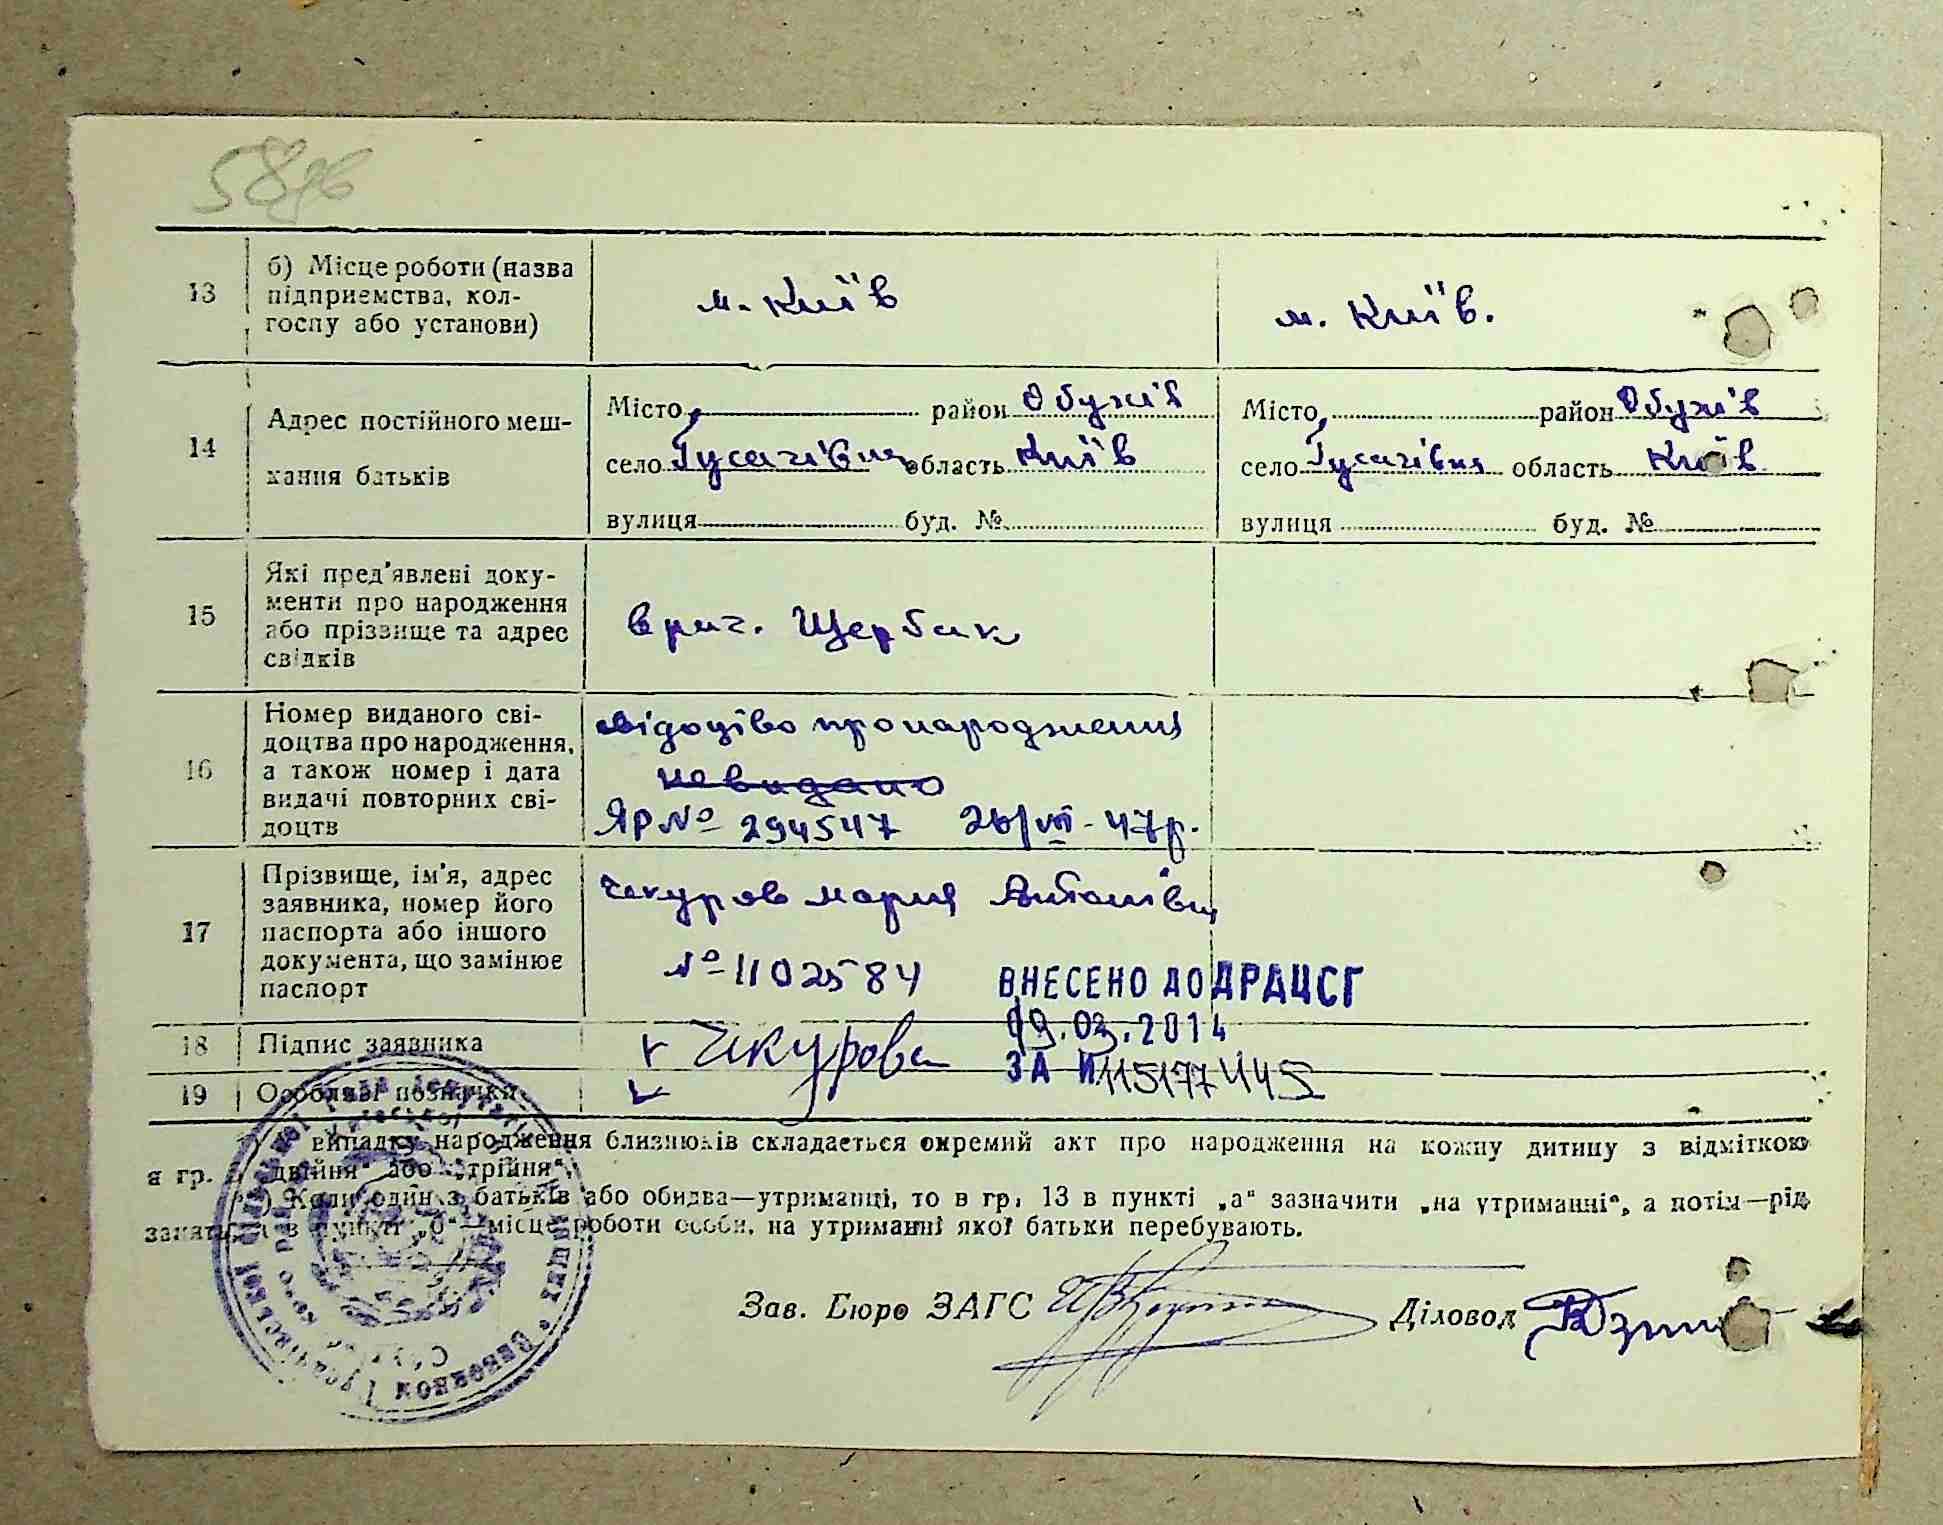 58 зв
13
б) Місце роботи (назва
підприємства, кол-
госпу або установи)
м. Київ
м. Київ.
14
Адрес постійного меш-
кання батьків
Місто район Обухів
село Гусачівка область Київ
вулиця буд. №
Місто район Обухів
село Гусачівка область Київ
вулиця буд. №
15
Які пред'явлені доку-
менти про народження
або прізвище та адрес
свідків
Щербак
16
Номер виданого сві-
доцтва про народження,
а також номер і дата
видачі повторних сві-
доцтв
свідоцтво про народження
не видано
ЯР № 294547 26/VII-47р.
17
Прізвище, ім'я, адрес
заявника, номер його
паспорта або іншого
документа, що замінює
паспорт
Чекурова Мария Антонівна
№ 1102584
ВНЕСЕНО ДО ДРАЦСГ
18
Підпис заявника
Чекурова
03.2014
19
Особливі позначки
ЗА №
випадку народження близнюків складається окремий акт про народження на кожну дитину з відміткою
в гр. „двійня“ або „трійня“.
Коли один з батьків або обидва—утриманці, то в гр. 13 в пункті „а“ зазначити „на утриманні“, а потім—рід
занять, а в пункті „б“—місце роботи особи, на утриманні якої батьки перебувають.
Зав. Бюро ЗАГС
Діловод